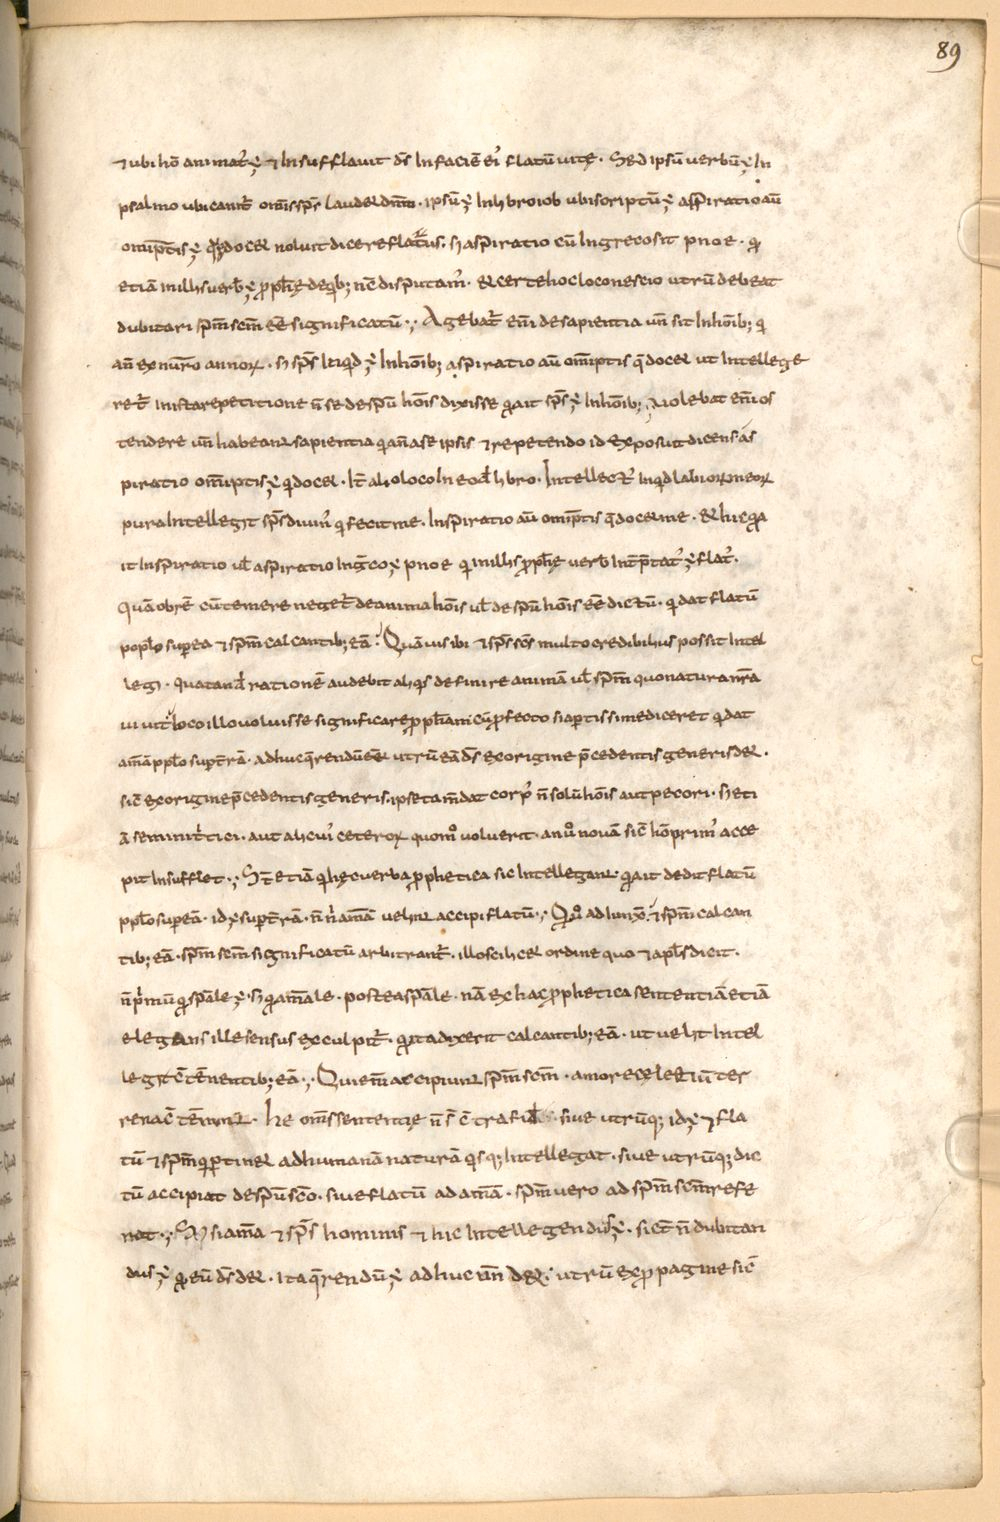 89
& ubi hō animat᷒ ÷ & insufflavit d̄s in faciē ei᷒ flatū vitę. Sed ipsū verbū ÷ in
psalmo ubi canit̄ om̄is sp̄s laudet dn̄m. ipsū ÷ in libro iob ubi scriptū ÷ aspiratio aū
om̄ipt̄is ÷ quę docet noluit dicere flatus. s; aspiratio cū in greco sit pnoe. qd̄
etiā in illis verb̄ ÷ proph̄ę de quib; nc̄ disputam᷒. et certe hoc loco nescio utrū debeat
dubitari sp̄m sc̄m eē significatū. Agebat̄ eni de sapientia un̄ sit in hōib; qd̄
an̄ ex nūro annoꝝ. s; sp̄s inqd̄ ÷ in hōib; aspiratio aū om̄ipt̄is q̄ docet ut intellege
ret̄ in ista repetitione n̄ se de sp̄u hōis dixisse qd̄ ait sp̄s ÷ in hōib; volebat eni os
tendere un̄ habeant sapientiā quia n̄ a se ipsis & repetendo id exposuit dicens as
piratio om̄ipt̄is ÷ q̄ docet. It̄ alio loco in eod̄ libro. Intellect᷒ inqd̄ labioꝝ meoꝝ
pura intelleget sp̄s divin᷒ qui fecit me. Inspiratio aū om̄ipt̄is q̄ docet me. et hic qd̄ a
it inspiratio ul̄ aspiratio in gr̄eco ÷ pnoe qd̄ in illis proph̄ę verb̄ int̄p̄tat᷒ ÷ flat᷒.
Quā obrē cū temere neget̄ de anima hōis ul̄ de sp̄u hōis eē dictū. qui dat flatū
poplo sup ea & sp̄m calcantib; eā. Quāvis ibi & sp̄s sc̄s multo credibilius possit intel
legi. qua tand̄ ratione audebit aliqs definire animā ul̄ sp̄m quo natura nr̄a
vivit loco illo voluisse significare proph̄am cū profecto si apertissime diceret qui dat
am̄ā pplo sup t̄rā. adhuc querendū eēt utrū eā d̄s ex origine p̄cedentis generis det.
sic̄ ex origine p̄cedentis generis. ipse tam̄ dat corp᷒ n̄ solū hōis aut pecori. s; eti
ā semini tritici. aut alicui᷒ ceteroꝝ quomo voluerit. an vo novā sic̄ hō prim᷒ acce
pit insufflet. S; etiā qui hęc verba prophetica sic intellegant. qd̄ ait dedit flatū
pplo sup eā. id ÷ sup t̄rā. n̄ nisi am̄ā velint accipi flatū. Qd̄ vo adiunx̄. & sp̄m calcan
tib; eā. sp̄m sc̄m significatū arbitrant̄. illo scilicet ordine quo & apls dicit.
n̄ primū qd̄ sp̄ale ÷. s; qd̄ am̄ale. postea sp̄ale. nā ex hac prophetica sententiā etiā
elegans ille sensus exculpit̄. qd̄ ita dixerit calcantib; eā. ut velit intel
legi ctēnentib; eā. Qui eni accipiunt sp̄m sc̄m. amore celestiū ter
rena c̄tēnunt. He om̄s sententię n̄ st̄ c̄tra fidē sive utrūq; id ÷ & fla
tū & sp̄m qd̄ ptinet ad humanā naturā qsq; intellegat. sive utrūq; dic
tū accipiat de sp̄u sc̄o. sive flatū ad am̄ā. sp̄m vero ad sp̄m sc̄m refe
rat. Sed si am̄a & sp̄s hominis & hic intellegendus ÷. sicc̄ n̄ dubitan
dus ÷ qd̄ eū d̄s det. ita q̄rendū ÷ adhuc un̄ det. utrū ex propagine sic̄